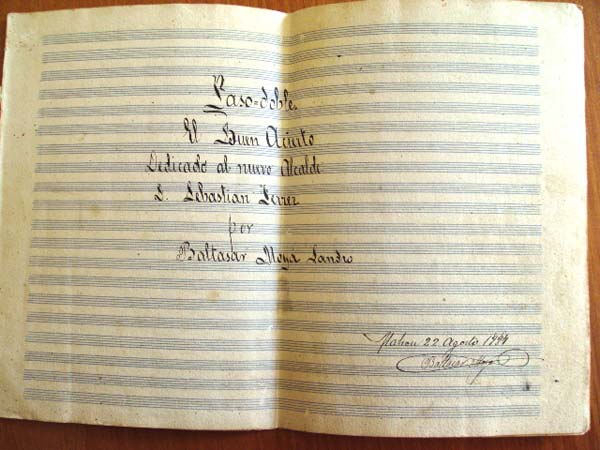 Paso-doble.
El Buen Acierto
Dedicado al nuevo Alcalde
D. Sebastian Ferrer
por
Baltasar Moyá
Mahon 22 Agosto
Baltasar Moyá